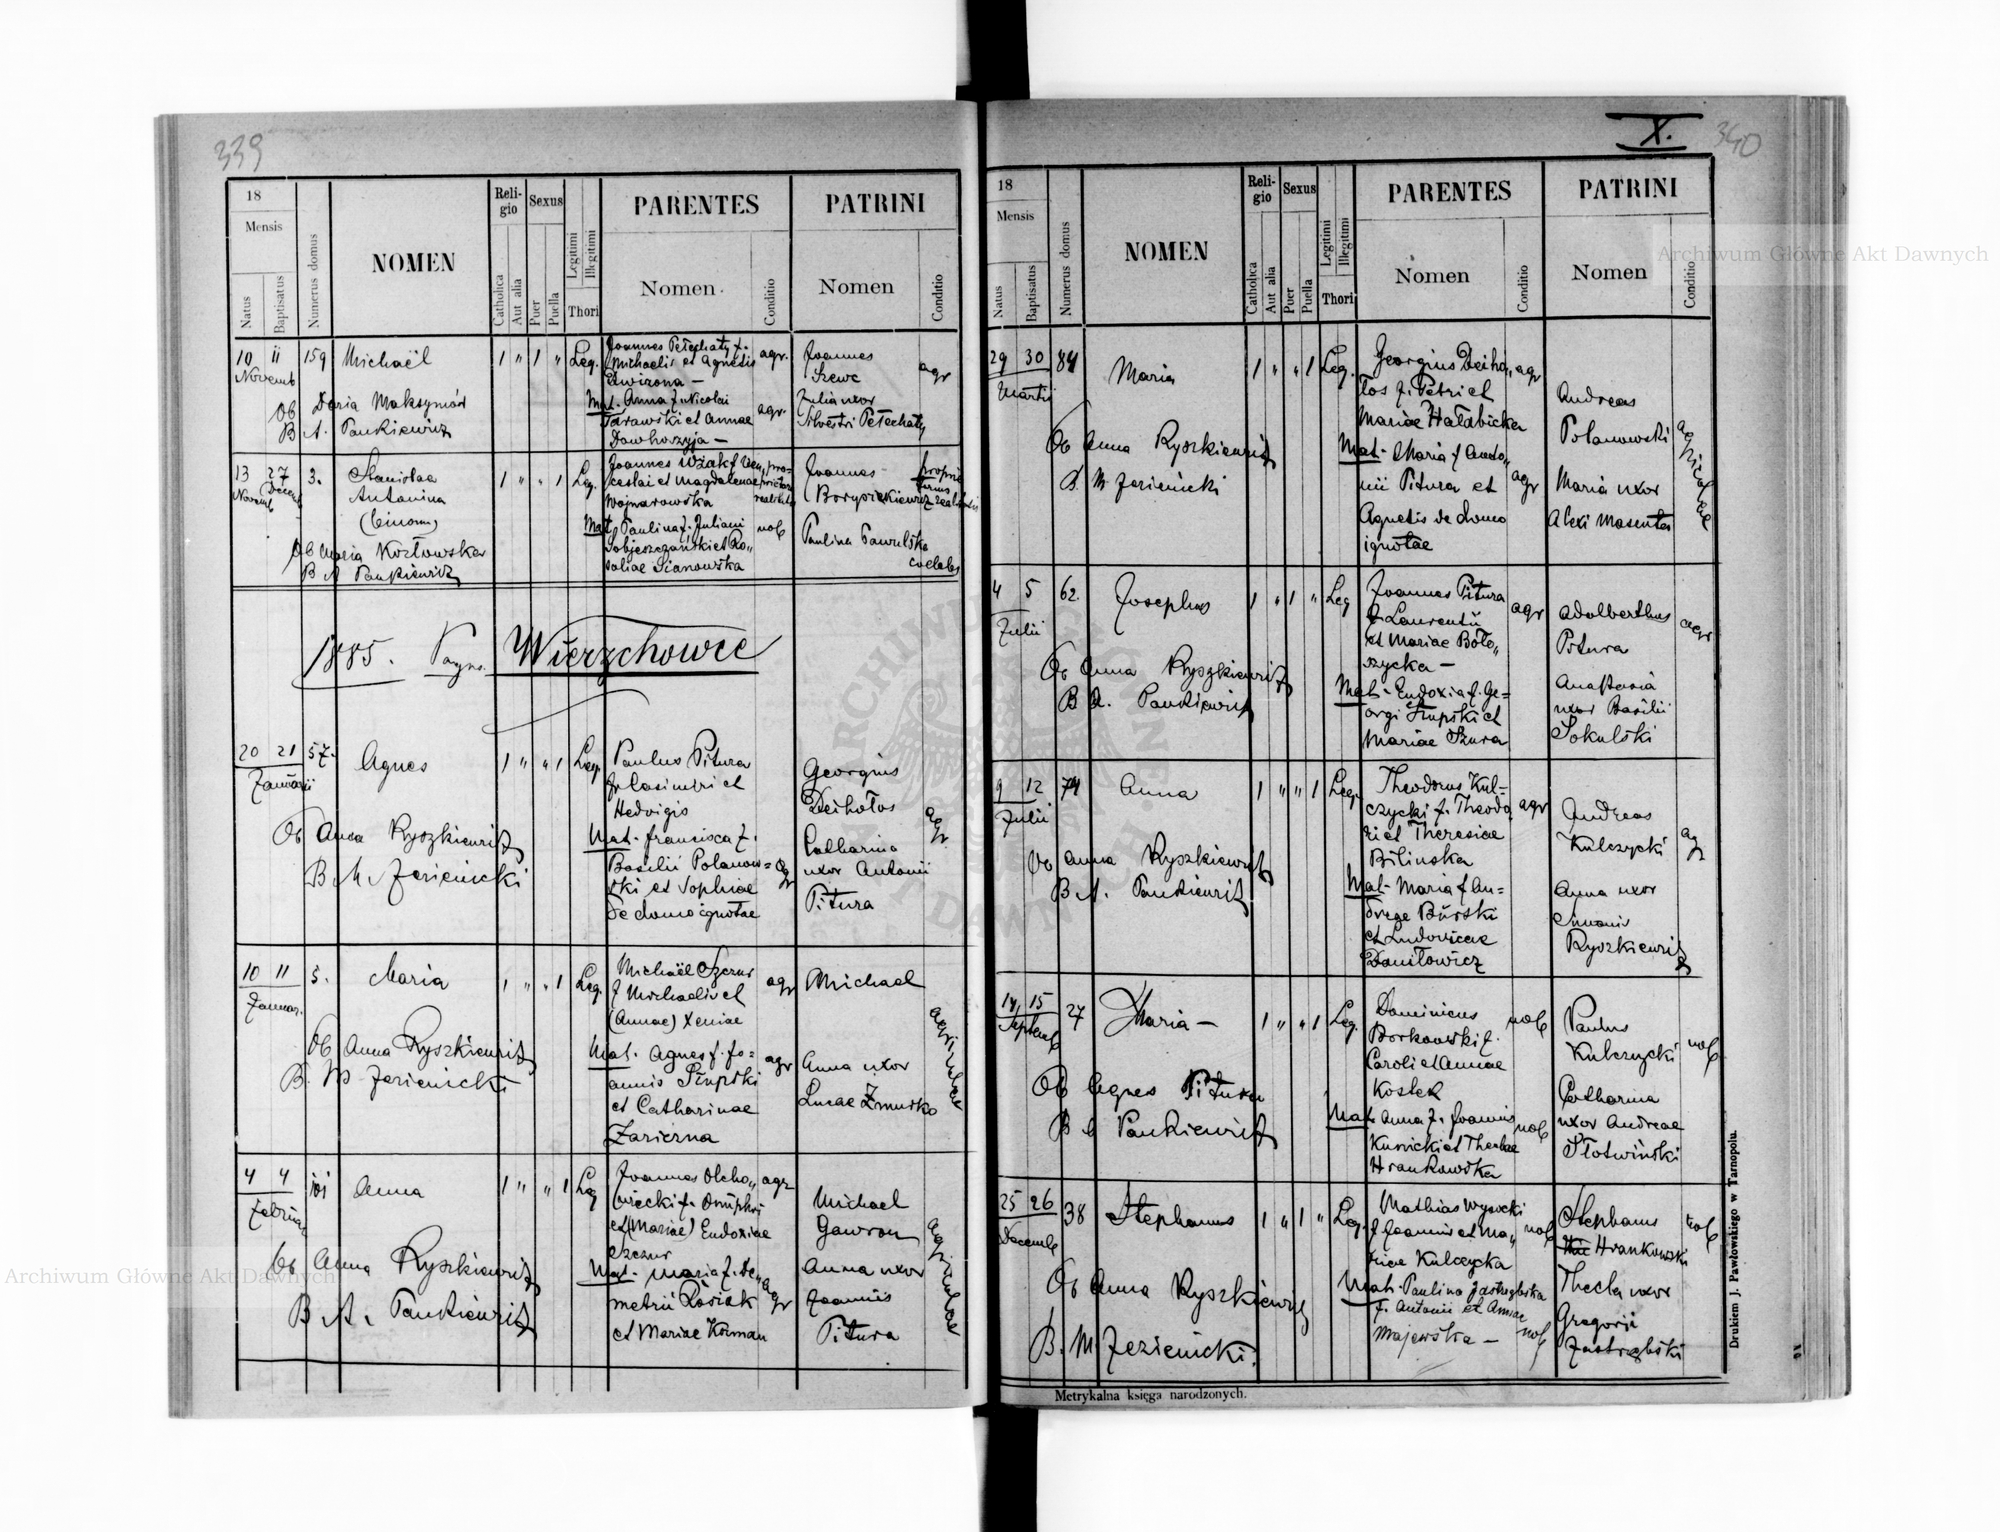 339
18
Mensis
Natus
Baptisatus
Numerus domus
NOMEN
Reli-
gio
Catholica
Aut alia
Sexus
Puer
Puella
Legitimi
Illegitimi
Thori
PARENTES
Nomen
Conditio
PATRINI
Nomen
Conditio
10 11 159 Michaël 1 " 1 " Leg.
Novemb
Ob Daria Maksymów
B A. Pankiewicz
Joannes Petechaty f.
Michaelis et Agnetis
agr.
Mat. Anna f. Nicolai
Tarawski et Annae
Dowhoszyja —
agr.
Joannes
Szewc
Julia uxor
Silvestri Petechaty
agr
13 27 3. Stanislaa 1 " " 1 Leg.
Novemb Decemb
Antonina
(binom)
Ob Maria Kozłowska
B A Pankiewicz
Joannes Wiak f. Ven
ceslai et Magdalenae
Wojnarowska
Mat. Paulina f. Juliani
Sobjeszczański et Ro„
saliae Sianowska
nob
Joannes
Borysiekiewicz
Paulina Pawulska
coelebs
1885. Pagus. Wierzchowce
20 21 57. Agnes 1 " " 1 Leg.
Januarii
Ob Anna Ryszkiewicz
B. M. Jezienicki
Paulus Pitura
f. Casimiri et
Hedvigis
Mat. Francisca f.
Basilii Polanow=
ski et Sophiae
de domo ignotae
agr
Georgius
Deihołos
Catharina
uxor Antonii
Pitura
agr.
10 11 3. Maria 1 " " 1 Leg.
Januar.
Ob Anna Ryszkiewicz
B. M Jezienicki
Michaël Szczur
f Michaelis et
(Annae) Xeniae
agr
Mat. Agnes f. Jo=
annis Słupski
et Catharinae
Zarizna
agr
Michael
Anna uxor
Lucae Zmurko
agricolae
4 4 101 Anna 1 " " 1 Leg
Februar
Ob Anna Ryszkiewicz
B A. Pankiewicz
Joannes Olcho„
wiecki f. Onuphri
et (Mariae) Eudoxiae
Szczur
agr
Mat. Maria f. De„
metrii Łosiak
et Mariae Korman
agr
Michael
Gawron
Anna uxor
Joannis
Pitura
agricolae
X. 340
18
Mensis
Natus
Baptisatus
Numerus domus
NOMEN
Reli-
gio
Catholica
Aut alia
Sexus
Puer
Puella
Legitimi
Illegitimi
Thori
PARENTES
Nomen
Conditio
PATRINI
Nomen
Conditio
29 30 84 Maria 1 " " 1 Leg.
Martii
Ob Anna Ryszkiewicz
B. M Jezienicki
Georgius Deiho„
łos f. Petri et
Mariae Hałabicka
agr
Mat. Maria f Anto„
nii Pitura et
Agnetis de domo
ignotae
agr
Andreas
Polanowski
Maria uxor
Alexi Masenta
agricolae
4 5 62. Josephus 1 " 1 " Leg
Julii
Ob Anna Ryszkiewicz
B A. Pankiewicz
Joannes Pitura
f. Laurentii
et Mariae Boło„
szycka —
agr
Mat. Eudoxia f. Ge=
orgi Słupski et
Mariae Szura
Adalberthus
Pitura
Anastasia
uxor Basilii
Sokulski
agr
9 12 74 Anna 1 " " 1 Leg.
Julii
Ob Anna Ryszkiewicz
B A. Pankiewicz
Theodorus Kul-
czycki f. Theodo
ri et Theresiae
Bilinska
agr
Mat. Maria f An=
dreae Burski
et Ludovicae
Daniłowicz
Andreas
Kulczycki
Anna uxor
Simonis
Ryszkiewicz
agr
14 15 27 Maria — 1 " " 1 Leg.
Septemb
Ob Agnes Pitura
B A Pankiewicz
Dominicus
Borkowski f.
Caroli et Annae
Kostek
nob
Mat. Anna f. Joannis
Kunicki et Theclae
Hrankowska
nob
Paulus
Kulczycki
Catharina
uxor Andreae
Słotwiński
nob
25 26 38 Stephanus 1 " 1 " Leg.
Decemb
Ob Anna Ryszkiewicz
B. M. Jezienicki.
Mathias Wysocki
f Joannis et Ma„
riae Kulczycka
nob
Mat. Paulina Jastrzębska
f. Antonii et Annae
Majewska —
nob
Stephanus
Hrankowski
Thecla uxor
Gregorii
Jastrzębski
nob
Metrykalna księga narodzonych.
Drukiem J. Pawłowskiego w Tarnopolu.
Archiwum Główne Akt Dawnych
Archiwum Główne Akt Dawnych